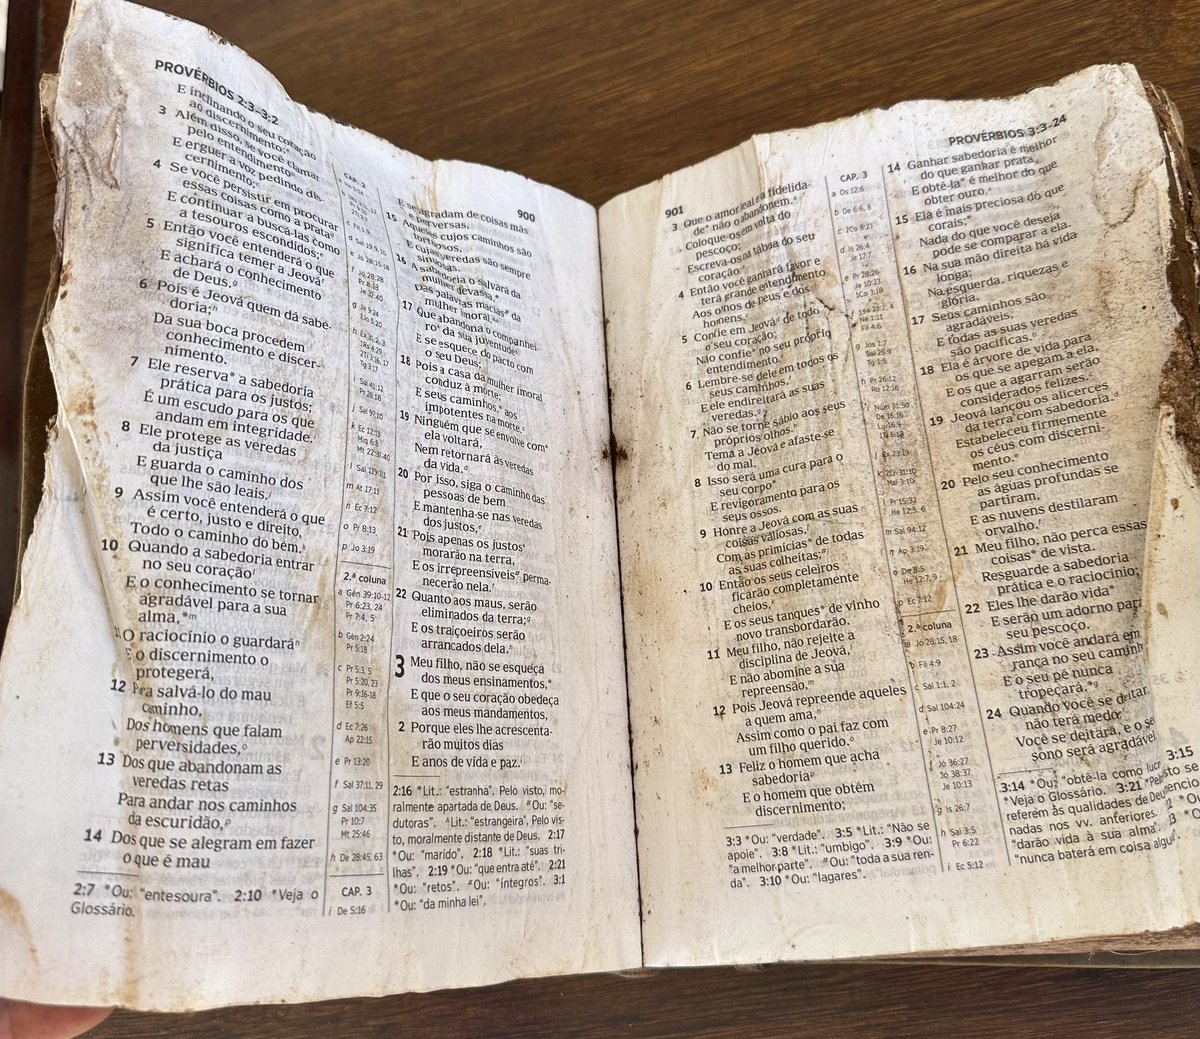 PROVÉRBIOS 2:3–3:2
900
E inclinando o seu coração
ao discernimento;
3 Além disso, se você clamar
pelo entendimento
E erguer a voz pedindo dis-
cernimento;
4 Se você persistir em procurar
essas coisas como a prata
E continuar a buscá-las como
a tesouros escondidos;
5 Então você entenderá o que
significa temer a Jeová
E achará o conhecimento
de Deus.
6 Pois é Jeová quem dá sabe-
doria;
Da sua boca procedem
conhecimento e discer-
nimento.
7 Ele reserva* a sabedoria
prática para os justos;
É um escudo para os que
andam em integridade.
8 Ele protege as veredas
da justiça
E guarda o caminho dos
que lhe são leais.
9 Assim você entenderá o que
é certo, justo e direito,
Todo o caminho do bem.
10 Quando a sabedoria entrar
no seu coração
E o conhecimento se tornar
agradável para a sua
alma,*m
O raciocínio o guardará
E o discernimento o
protegerá,
12 Pra salvá-lo do mau
caminho,
Dos homens que falam
perversidades,
13 Dos que abandonam as
veredas retas
Para andar nos caminhos
da escuridão,
14 Dos que se alegram em fazer
o que é mau
2:7 *Ou: "entesoura". 2:10 *Veja o
Glossário.
CAP. 2
c Fil 1:9
e Jó 28:15-18
f Jó 28:28
Pr 8:13
Je 32:40
l Sal 119:11
m At 17:11
n Ec 7:12
o Pr 8:13
p Jo 3:19
2.ª coluna
a Gên 39:10-12
Pr 6:23, 24
Pr 7:4, 5
b Gên 2:24
Pr 5:18
c Pr 5:3, 5
Pr 5:20, 23
Pr 9:16-18
Ef 5:5
d Ec 7:26
Ap 22:15
e Pr 13:20
f Sal 37:11, 29
g Sal 104:35
Pr 10:7
Mt 25:46
h De 28:45, 63
CAP. 3
i De 5:16
E se agradam de coisas más
e perversas,
15 Aqueles cujos caminhos são
tortuosos,
E cujas veredas são sempre
sinuosas.
16 A sabedoria o salvará da
mulher devassa,*
Das palavras macias* da
mulher imoral,
17 Que abandona o companhei-
ro* da sua juventude
E se esquece do pacto com
o seu Deus;
18 Pois a casa da mulher imoral
conduz à morte;
E seus caminhos,* aos
impotentes na morte.
19 Ninguém que se envolve com*
ela voltará,
Nem retornará às veredas
da vida.
20 Por isso, siga o caminho das
pessoas de bem
E mantenha-se nas veredas
dos justos,
21 Pois apenas os justos
morarão na terra,
E os irrepreensíveis* perma-
necerão nela.
22 Quanto aos maus, serão
eliminados da terra;
E os traiçoeiros serão
arrancados dela.
3 Meu filho, não se esqueça
dos meus ensinamentos,*
E que o seu coração obedeça
aos meus mandamentos,
2 Porque eles lhe acrescenta-
rão muitos dias
E anos de vida e paz.
2:16 *Lit.: "estranha". Pelo visto, mo-
ralmente apartada de Deus. #Ou: "se-
dutoras". ^Lit.: "estrangeira". Pelo vis-
to, moralmente distante de Deus. 2:17
*Ou: "marido". 2:18 *Lit.: "suas tri-
lhas". 2:19 *Ou: "que entra até". 2:21
*Ou: "retos". #Ou: "íntegros". 3:1
*Ou: "da minha lei".
901
PROVÉRBIOS 3:3-24
3 Que o amor leal e a fidelida-
de* não o abandonem.
Coloque-os em volta do
pescoço;
Escreva-os na tábua do seu
coração
4 Então você ganhará favor e
terá grande entendimento
Aos olhos de Deus e dos
homens.
5 Confie em Jeová de todo
o seu coração;
Não confie* no seu próprio
entendimento.
6 Lembre-se dele em todos os
seus caminhos,
E ele endireitará as suas
veredas.
7 Não se torne sábio aos seus
próprios olhos.
Tema a Jeová e afaste-se
do mal.
8 Isso será uma cura para o
seu corpo*
E revigoramento para os
seus ossos.
9 Honre a Jeová com as suas
coisas valiosas,
Com as primícias* de todas
as suas colheitas;
10 Então os seus celeiros
ficarão completamente
cheios,
E os seus tanques* de vinho
novo transbordarão.
11 Meu filho, não rejeite a
disciplina de Jeová,
E não abomine a sua
repreensão,
12 Pois Jeová repreende aqueles
a quem ama,
Assim como o pai faz com
um filho querido.
13 Feliz o homem que acha
sabedoria
E o homem que obtém
discernimento;
3:3 *Ou: "verdade". 3:5 *Lit.: "Não se
apoie". 3:8 *Lit.: "umbigo". 3:9 *Ou:
"a melhor parte". #Ou: "toda a sua ren-
da". 3:10 *Ou: "lagares".
CAP. 3
a Os 12:6
b De 6:6, 8
c 2Co 8:21
d Is 26:4
Je 17:7
e Pr 28:26
Je 10:23
1Co 3:18
h Pr 26:12
Ro 12:16
m Sal 94:12
n Ap 3:19
o De 8:5
He 12:7, 9
p Ec 7:12
2.ª coluna
a Jó 28:15, 18
b Fil 4:9
c Sal 1:1, 2
d Sal 104:24
e Pr 8:27
Je 10:12
f Jó 36:27
Jó 38:37
Je 10:13
g Is 26:7
h Sal 3:5
Pr 6:22
i Ec 5:12
14 Ganhar sabedoria é melhor
do que ganhar prata,
E obtê-la* é melhor do que
obter ouro.
15 Ela é mais preciosa do que
corais;*
Nada do que você deseja
pode se comparar a ela.
16 Na sua mão direita há vida
longa;
Na esquerda, riquezas e
glória.
17 Seus caminhos são
agradáveis,
E todas as suas veredas
são pacíficas.
18 Ela é árvore de vida para
os que se apegam a ela,
E os que a agarram serão
considerados felizes.
19 Jeová lançou os alicerces
da terra com sabedoria.
Estabeleceu firmemente
os céus com discerni-
mento.
20 Pelo seu conhecimento
as águas profundas se
partiram,
E as nuvens destilaram
orvalho.
21 Meu filho, não perca essas
coisas* de vista.
Resguarde a sabedoria
prática e o raciocínio;
22 Eles lhe darão vida*
E serão um adorno para
seu pescoço.
23 Assim você andará em
rança no seu caminh
E o seu pé nunca
tropeçará.
24 Quando você se deitar,
não terá medo;
Você se deitará, e o se
sono será agradável
3:14 *Ou: "obtê-la como lucr 3:15
*Veja o Glossário. 3:21 *Pelo
referem às qualidades de Deu
nadas nos vv. anteriores. *Ou:
"darão vida à sua alma". *Ou:
"nunca baterá em coisa algu